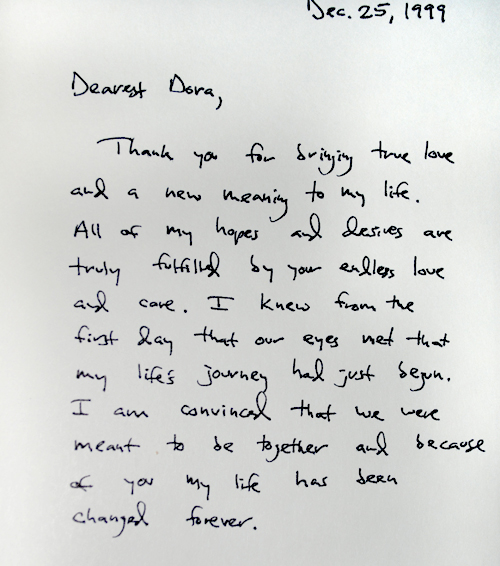 Dec. 25, 1999
Dearest Dora,
Thank you for bringing true love
and a new meaning to my life.
All of my hopes and desires are
truly fulfilled by your endless love
and care. I knew from the
first day that our eyes met that
my life's journey had just begun.
I am convinced that we were
meant to be together and because
of you my life has been
changed forever.